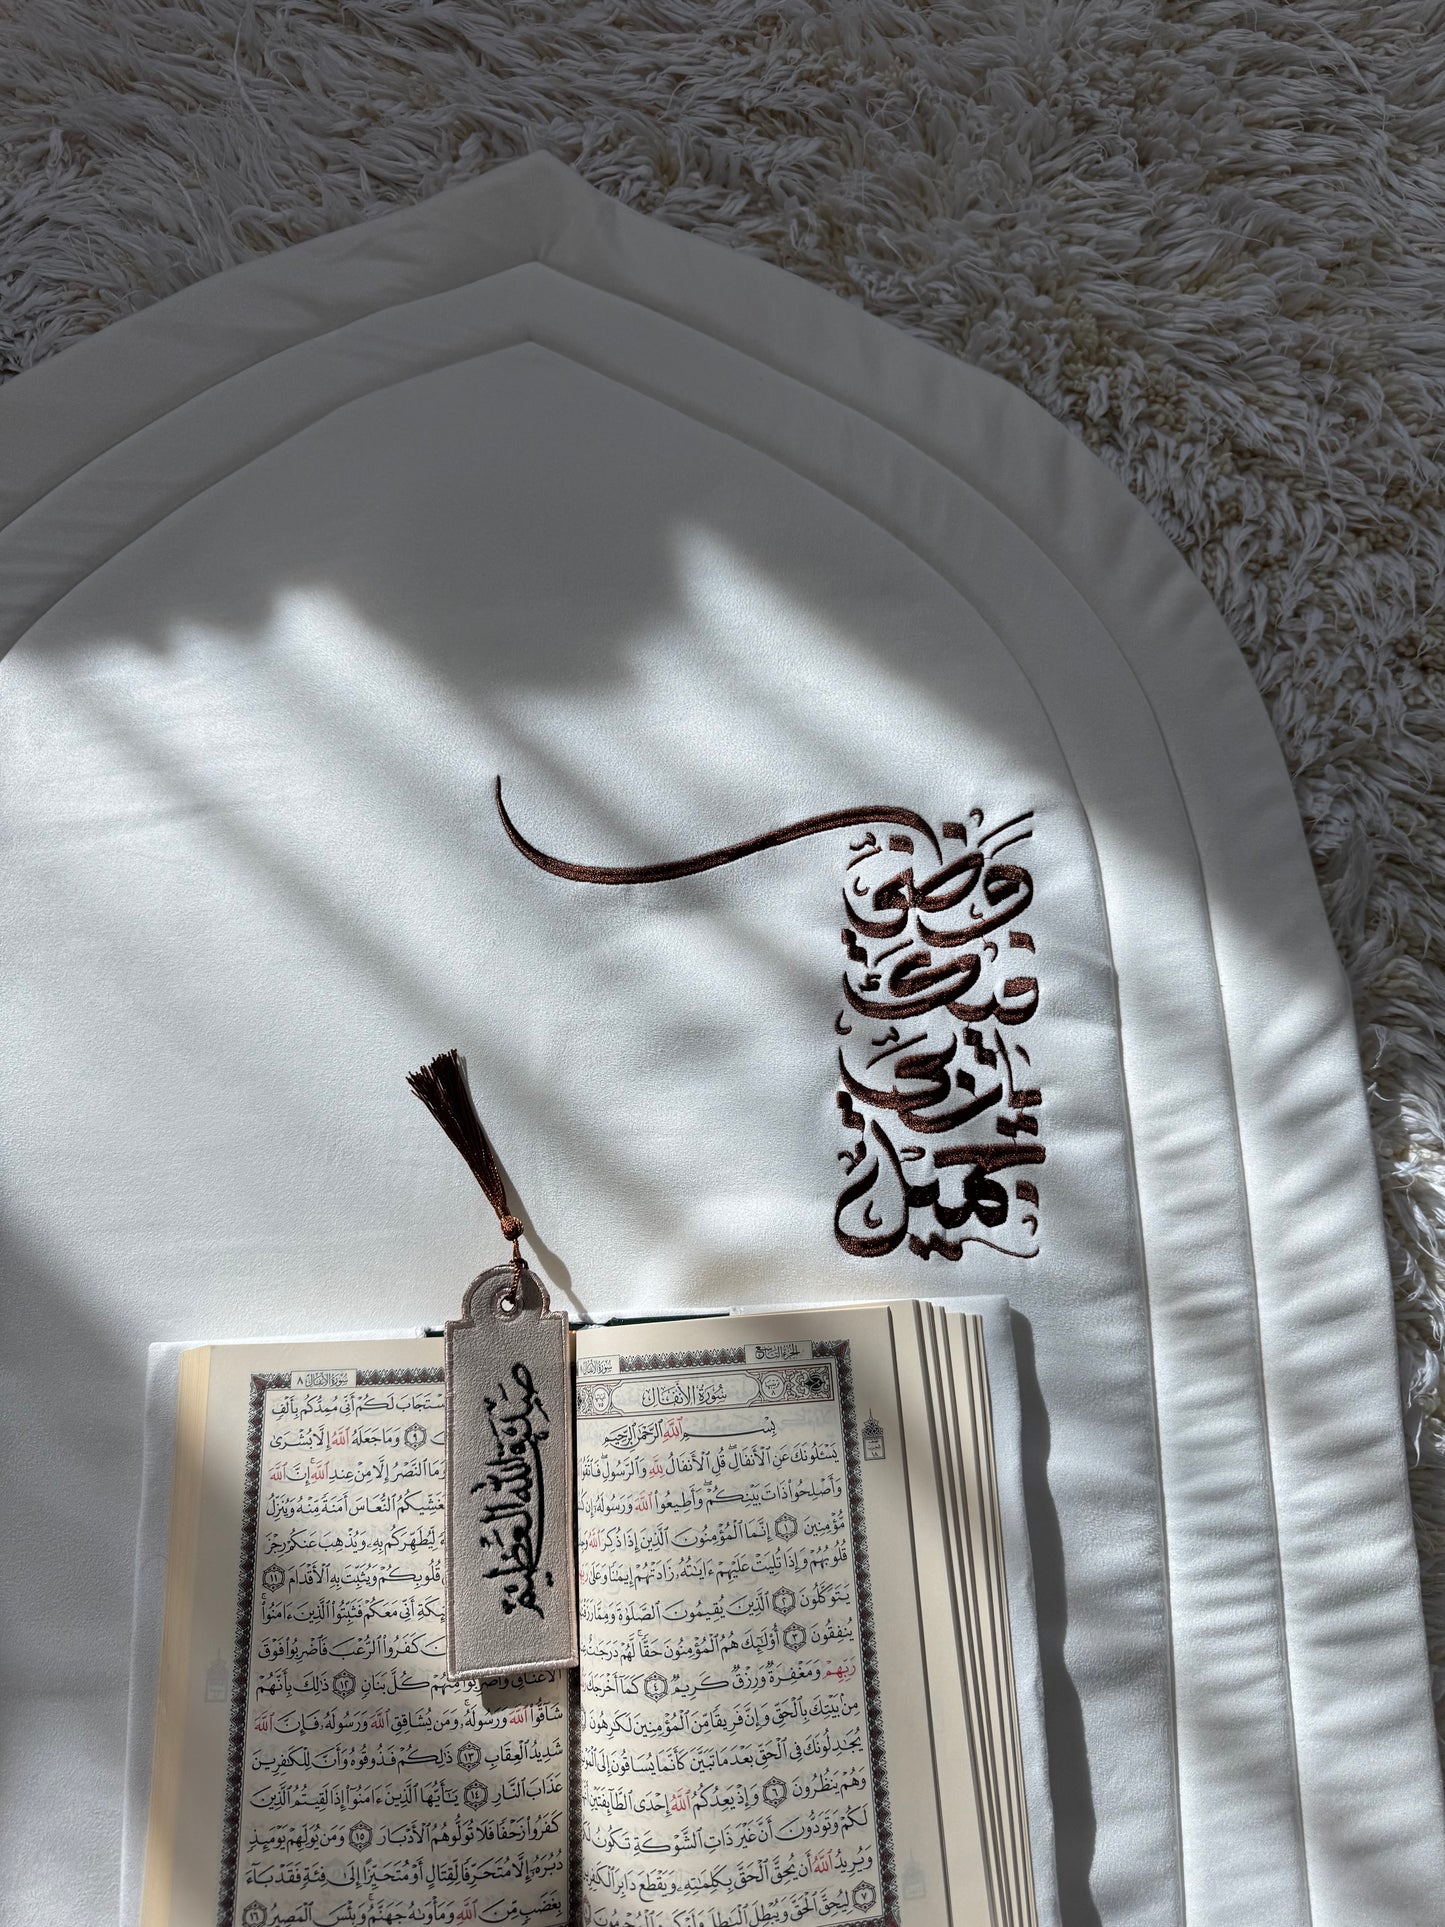 وظني
فيك
يا ربي
جميل
صدق الله العظيم
الجزء التاسع سورة الأنفال
سُورَةُ الأَنفَالِ
بِسْمِ ٱللَّهِ ٱلرَّحْمَٰنِ ٱلرَّحِيمِ
يَسْـَٔلُونَكَ عَنِ ٱلْأَنفَالِ ۖ قُلِ ٱلْأَنفَالُ لِلَّهِ وَٱلرَّسُولِ ۖ فَٱتَّقُو
وَأَصْلِحُوا۟ ذَاتَ بَيْنِكُمْ ۖ وَأَطِيعُوا۟ ٱللَّهَ وَرَسُولَهُۥٓ إِن
مُّؤْمِنِينَ ١ إِنَّمَا ٱلْمُؤْمِنُونَ ٱلَّذِينَ إِذَا ذُكِرَ ٱللَّهُ
قُلُوبُهُمْ وَإِذَا تُلِيَتْ عَلَيْهِمْ ءَايَٰتُهُۥ زَادَتْهُمْ إِيمَٰنًا وَعَلَىٰ
يَتَوَكَّلُونَ ٢ ٱلَّذِينَ يُقِيمُونَ ٱلصَّلَوٰةَ وَمِمَّا رَزَقْ
يُنفِقُونَ ٣ أُو۟لَٰٓئِكَ هُمُ ٱلْمُؤْمِنُونَ حَقًّا ۚ لَّهُمْ دَرَجَٰتٌ
رَبِّهِمْ وَمَغْفِرَةٌ وَرِزْقٌ كَرِيمٌ ٤ كَمَآ أَخْرَجَكَ
مِنۢ بَيْتِكَ بِٱلْحَقِّ وَإِنَّ فَرِيقًا مِّنَ ٱلْمُؤْمِنِينَ لَكَٰرِهُونَ
يُجَٰدِلُونَكَ فِى ٱلْحَقِّ بَعْدَ مَا تَبَيَّنَ كَأَنَّمَا يُسَاقُونَ إِلَى ٱلْمَوْ
وَهُمْ يَنظُرُونَ ٦ وَإِذْ يَعِدُكُمُ ٱللَّهُ إِحْدَى ٱلطَّآئِفَتَيْنِ
لَكُمْ وَتَوَدُّونَ أَنَّ غَيْرَ ذَاتِ ٱلشَّوْكَةِ تَكُونُ
وَيُرِيدُ ٱللَّهُ أَن يُحِقَّ ٱلْحَقَّ بِكَلِمَٰتِهِۦ وَيَقْطَعَ دَابِرَ ٱلْكَٰفِرِ
٧ لِيُحِقَّ ٱلْحَقَّ وَيُبْطِلَ ٱلْبَٰطِلَ وَلَوْ كَرِهَ ٱلْمُجْرِمُونَ
سورة الأنفال ٨
ٱسْتَجَابَ لَكُمْ أَنِّى مُمِدُّكُم بِأَلْفٍ
٩ وَمَا جَعَلَهُ ٱللَّهُ إِلَّا بُشْرَىٰ
وَمَا ٱلنَّصْرُ إِلَّا مِنْ عِندِ ٱللَّهِ ۚ إِنَّ ٱللَّهَ
يُغَشِّيكُمُ ٱلنُّعَاسَ أَمَنَةً مِّنْهُ وَيُنَزِّلُ
لِّيُطَهِّرَكُم بِهِۦ وَيُذْهِبَ عَنكُمْ رِجْزَ
قُلُوبِكُمْ وَيُثَبِّتَ بِهِ ٱلْأَقْدَامَ ١١
أَنِّى مَعَكُمْ فَثَبِّتُوا۟ ٱلَّذِينَ ءَامَنُوا۟ ۚ
كَفَرُوا۟ ٱلرُّعْبَ فَٱضْرِبُوا۟ فَوْقَ
ٱلْأَعْنَاقِ وَٱضْرِبُوا۟ مِنْهُمْ كُلَّ بَنَانٍ ١٢ ذَٰلِكَ بِأَنَّهُمْ
شَآقُّوا۟ ٱللَّهَ وَرَسُولَهُۥ ۚ وَمَن يُشَاقِقِ ٱللَّهَ وَرَسُولَهُۥ فَإِنَّ ٱللَّهَ
شَدِيدُ ٱلْعِقَابِ ١٣ ذَٰلِكُمْ فَذُوقُوهُ وَأَنَّ لِلْكَٰفِرِينَ
عَذَابَ ٱلنَّارِ ١٤ يَٰٓأَيُّهَا ٱلَّذِينَ ءَامَنُوٓا۟ إِذَا لَقِيتُمُ ٱلَّذِينَ
كَفَرُوا۟ زَحْفًا فَلَا تُوَلُّوهُمُ ٱلْأَدْبَارَ ١٥ وَمَن يُوَلِّهِمْ يَوْمَئِذٍ
دُبُرَهُۥٓ إِلَّا مُتَحَرِّفًا لِّقِتَالٍ أَوْ مُتَحَيِّزًا إِلَىٰ فِئَةٍ فَقَدْ بَآءَ
بِغَضَبٍ مِّنَ ٱللَّهِ وَمَأْوَىٰهُ جَهَنَّمُ ۖ وَبِئْسَ ٱلْمَصِيرُ ١٦